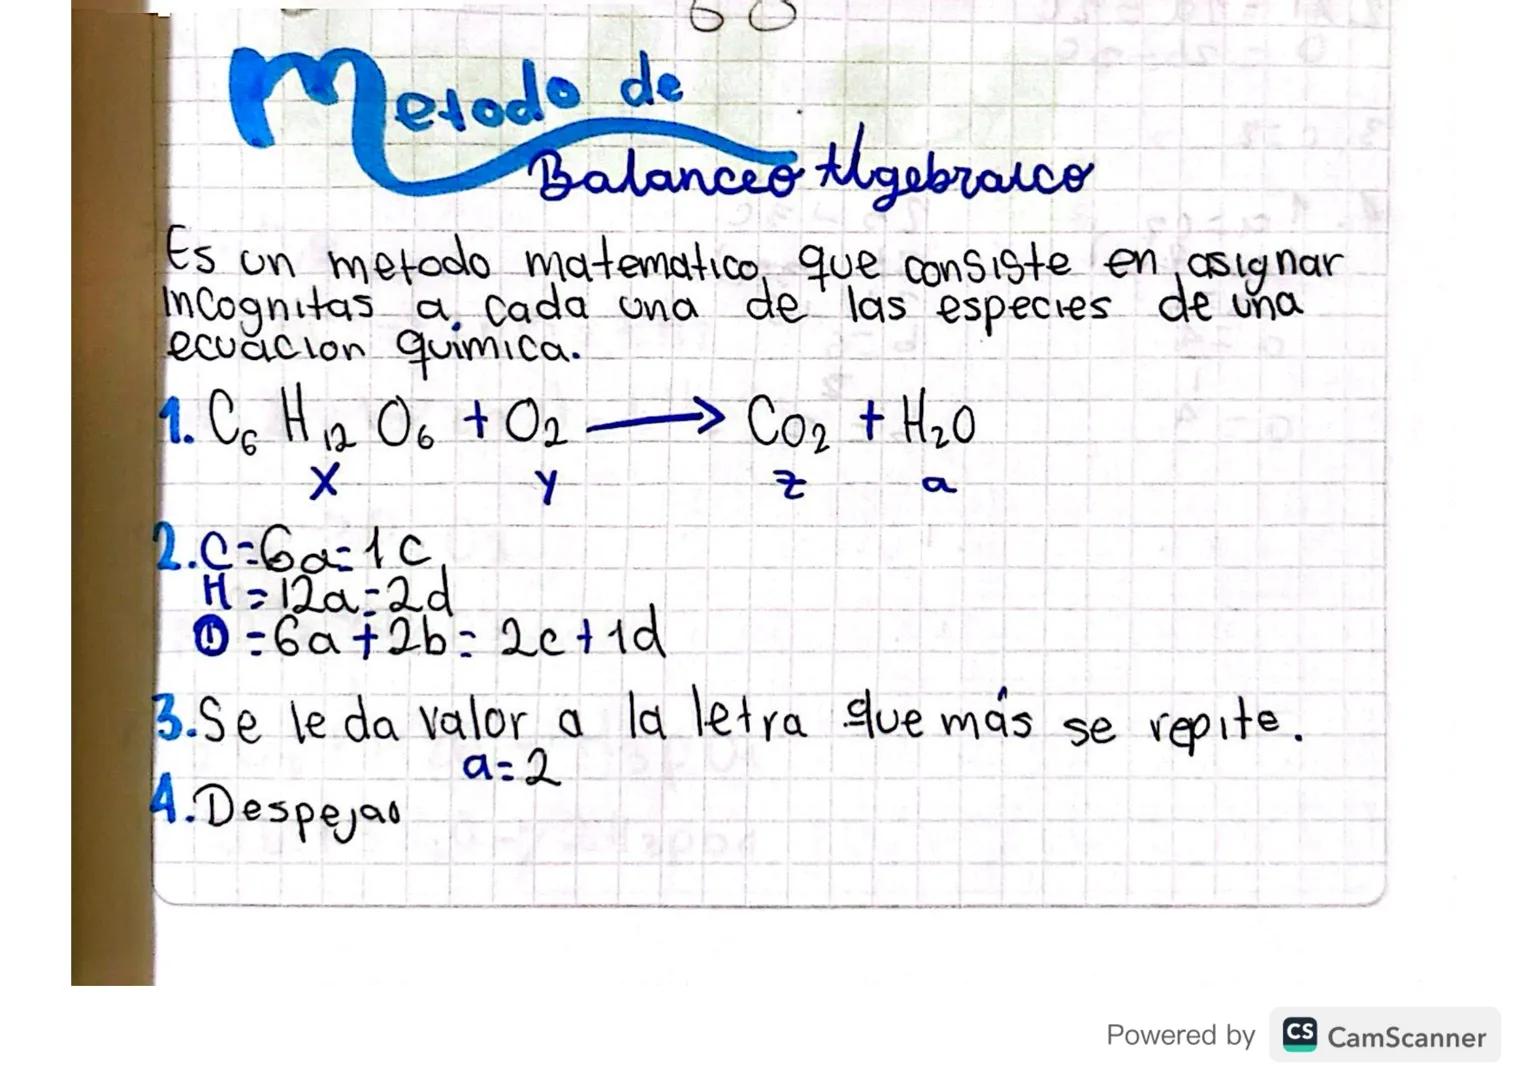 Metodo de
Balanceo Algebraico
Es un metodo matematico, que consiste en asignar
incognitas a cada una de las especies de una
ecuacion quimica.
1. C₆ H₁₂ O₆ + O₂ → CO₂ + H₂O
x y z a
2. C=6a=1c
H=12a=2d
O=6a+2b=2c+1d
3. Se le da valor a la letra que más se repite.
a=2
4. Despejar
Powered by CS CamScanner